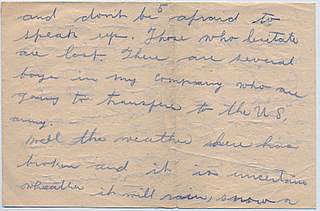 5
and don't be afraid to
speak up. Those who hesitate
are lost. There are several
boys in my company who are
going to transfer to the U.S.
army.
Well the weather here has
broken and it is uncertain
wheather it will rain, snow or